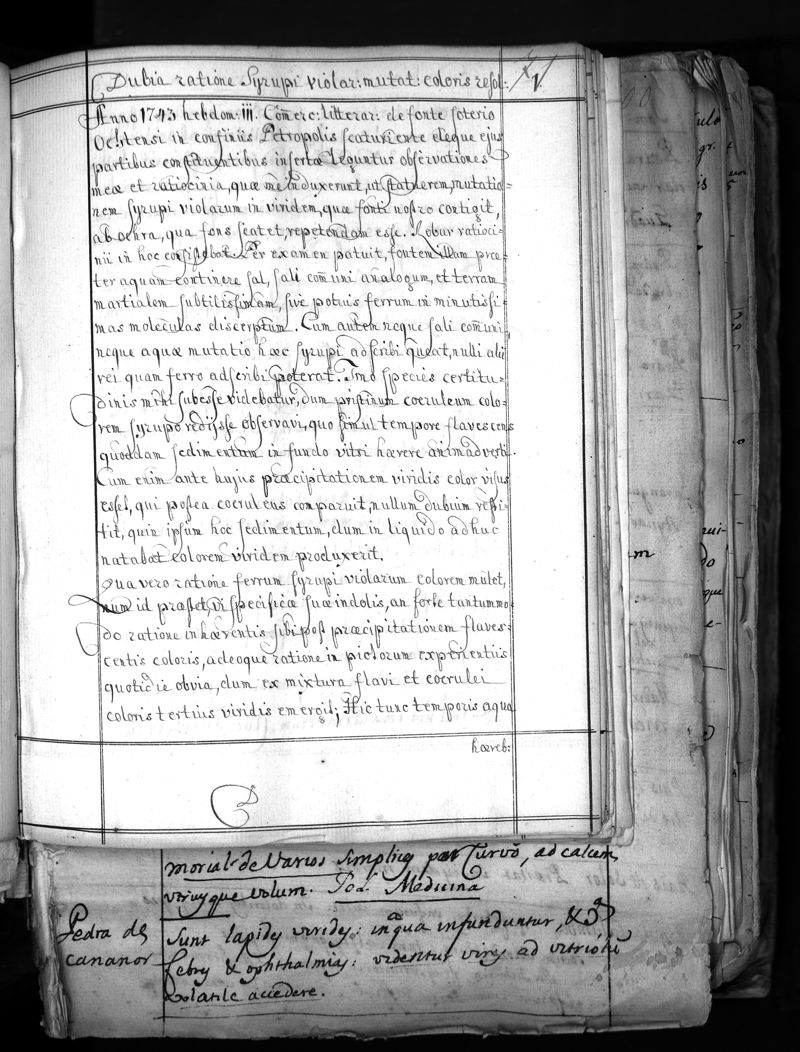 Dubia ratione Syrupi violar: mutat: coloris resol:
Anno 1743 hebdom: III. Com̃erc: litterar: de fonte soterio
Ochtensi in confiniis Petropolis scaturiente eleque ejus
partibus constituentibus insertæ leguntur observationes
meæ et ratiocinia, quæ me induxerunt, ut statuerem, mutatio-
nem syrupi violarum in viridem, quæ fonti nostro contigit,
ab ochra, qua fons scatet, repetendam esse. Robur ratioci-
nii in hoc consistebat. Per examen patuit, fontem illam præ-
ter aquam continere sal, sali com̃uni analogum, et terram
martialem subtilissimam, sive potius ferrum in minutissi-
mas moleculas discerptum. Cum autem neque sali com̃uni,
neque aquæ mutatio hæc syrupi adscribi queat, nulli alii
rei quam ferro adscribi poterat. Imo species certitu-
dinis mihi subesse videbatur, dum pristinum coeruleum colo-
rem syrupo rediisse observavi, quo simul tempore flavescens
quoddam sedimentum in fundo vitri hærere animadverti.
Cum enim ante hujus præcipitationem viridis color visus
esset, qui postea coeruleus comparuit, nullum dubium resti-
tit, quin ipsum hoc sedimentum, dum in liquido adhuc
natabat colorem viridem produxerit.
Qua vero ratione ferrum syrupi violarum colorem mutet,
num id præstet, vi specificæ suæ indolis, an forte tantummo-
do ratione inhærentis sibi post præcipitationem flaves-
centis coloris, adeoque ratione in pictorum experientiis
quotidie obvia, dum ex mixtura flavi et coerulei
coloris tertius viridis emergit; Hic tunc temporis aqua
hæreb:
morial de Varios simplices par Curvô, ad calcem,
utriusque volum. Pol. Medicina
Pedra de
cananor
Sunt lapides virides: in aqua infunduntur, &
febres & ophthalmias: videntur vires ad vitriolũ
volatile accedere.